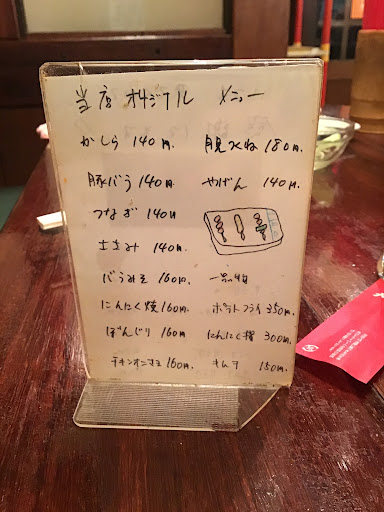 当店オリジナル メニュー
かしら 140円. 月見つくね 180円.
豚バラ 140円. やげん 140円.
つなぎ 140円
ささみ 140円.
バラみそ 160円. 一品物
にんにく焼 160円. ポテトフライ 350円.
ぼんじり 160円 にんにく揚 300円.
チキンオニオン 160円. キムチ 150円.